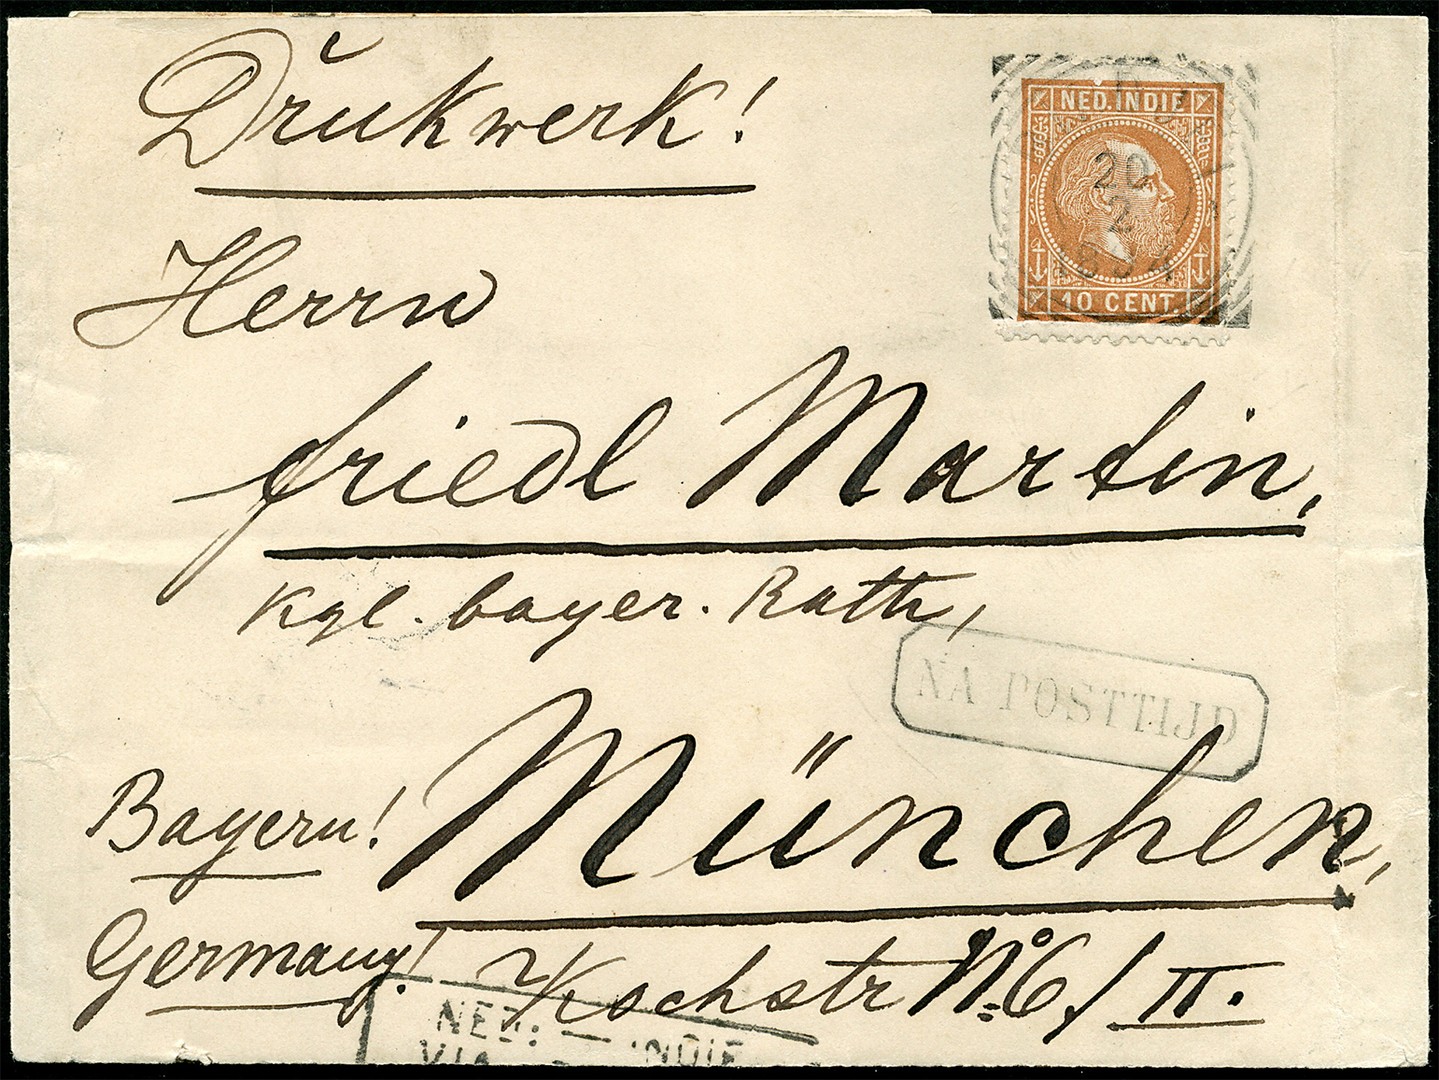 Drukwerk!
NED. INDIE
20
2
10 CENT.
Herrn
friedl Martin,
kgl. bayer. Rath,
NA POSTTIJD
München,
Bayern!
Germany!
Kochstr No. 6/II.
NED: — INDIE
VIA